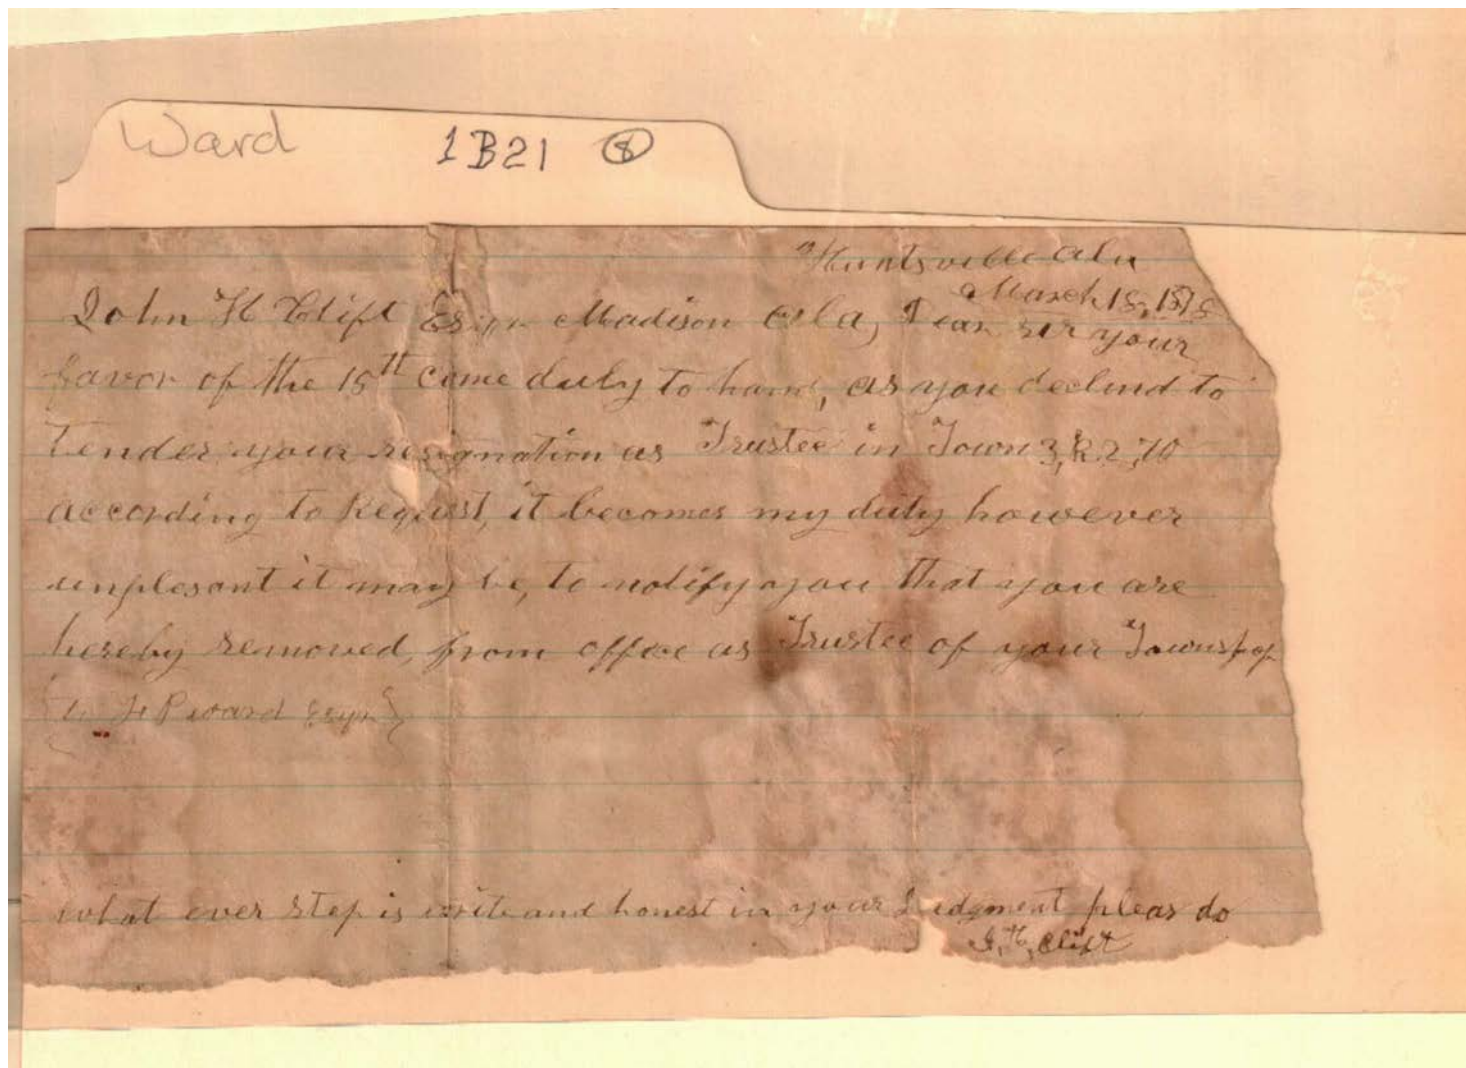 Ward 1B21 8
Huntsville Ala
March 18, 1878
John H Clift Esqr Madison Ala, Dear sir your
favor of the 15th came duly to hand, as you declind to
Tender your resignation as Trustee in Town 3, R. 2,
according to Request, it becomes my duty however
unplesant it may be, to notify you that you are
hereby removed, from office as Trustee of your Township
Ward Esqr
what ever step is and honest in your Judgment pleas do
J. H. Clift